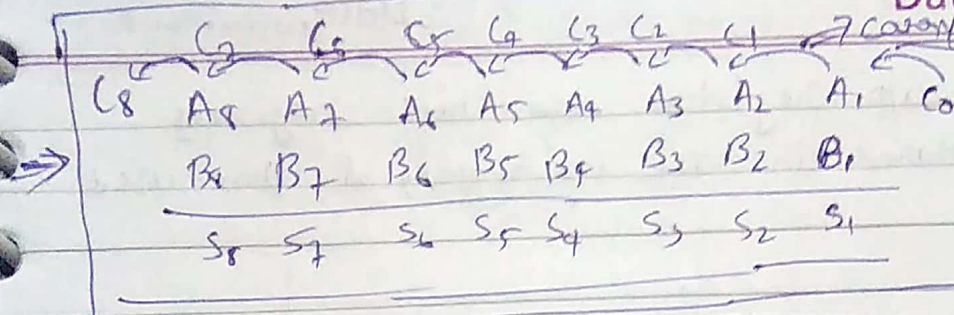 C7 C6 C5 C4 C3 C2 C1 carry
C8 A8 A7 A6 A5 A4 A3 A2 A1 C0
B8 B7 B6 B5 B4 B3 B2 B1
S8 S7 S6 S5 S4 S3 S2 S1